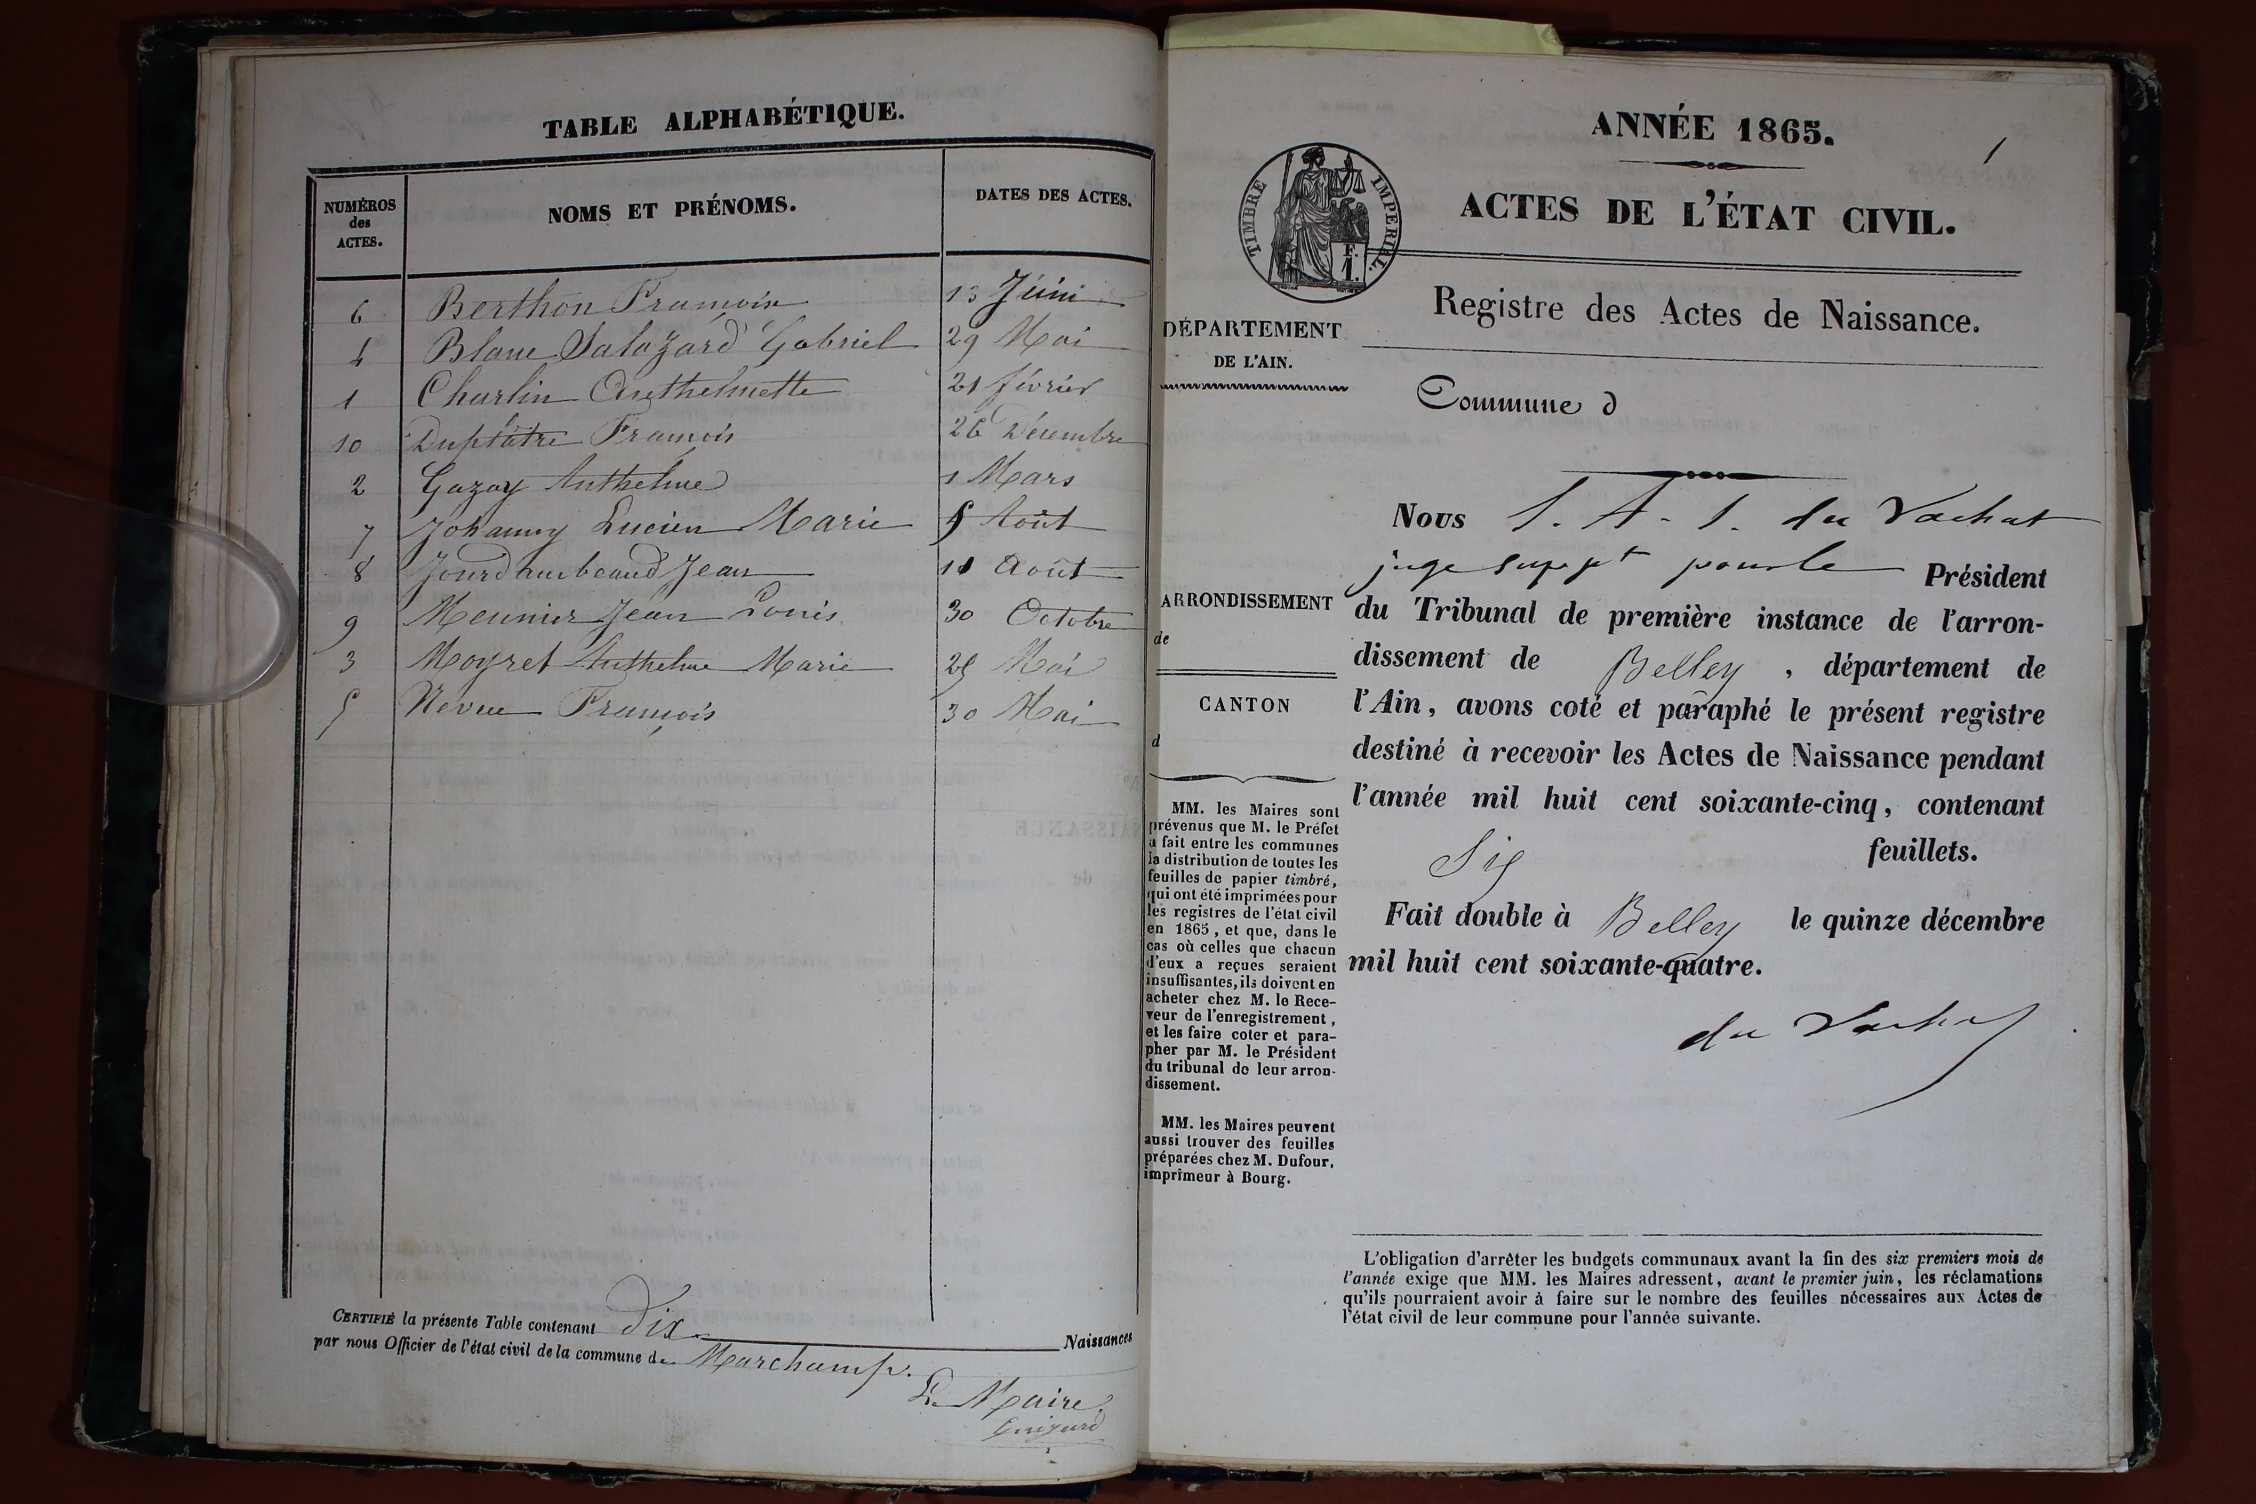 TABLE ALPHABÉTIQUE.
NUMÉROS des ACTES. NOMS ET PRÉNOMS. DATES DES ACTES.
6 Berthon François 13 Juin
4 Blanc Salazard Gabriel 29 Mai
1 Charlin Anthelmette 21 février
10 Duplâtre François 26 Décembre
2 Gazay Anthelme 1 Mars
7 Johanny Lucien Marie 5 Août
8 Jourdambeaud Jean 11 Août
9 Meunier Jean Louis 30 Octobre
3 Moyret Anthelme Marie 25 Mai
5 Neveu François 30 Mai
CERTIFIÉ la présente Table contenant dix Naissances
par nous Officier de l'état civil de la commune de Marchamp.
Le Maire,
Guizard
ANNÉE 1865.
1
TIMBRE IMPERIAL.
F.
1.
ACTES DE L'ÉTAT CIVIL.
Registre des Actes de Naissance.
DÉPARTEMENT
DE L'AIN.
Commune d
ARRONDISSEMENT
de
CANTON
d
MM. les Maires sont
prévenus que M. le Préfet
a fait entre les communes
la distribution de toutes les
feuilles de papier timbré,
qui ont été imprimées pour
les registres de l'état civil
en 1865, et que, dans le
cas où celles que chacun
d'eux a reçues seraient
insuffisantes, ils doivent en
acheter chez M. le Rece-
veur de l'enregistrement,
et les faire coter et para-
pher par M. le Président
du tribunal de leur arron-
dissement.
MM. les Maires peuvent
aussi trouver des feuilles
préparées chez M. Dufour,
imprimeur à Bourg.
NOUS du Vachat
juge suppt pour le Président
du Tribunal de première instance de l'arron-
dissement de Belley, département de
l'Ain, avons coté et paraphé le présent registre
destiné à recevoir les Actes de Naissance pendant
l'année mil huit cent soixante-cinq, contenant
Six feuillets.
Fait double à Belley le quinze décembre
mil huit cent soixante-quatre.
du Vachat
L'obligation d'arrêter les budgets communaux avant la fin des six premiers mois de
l'année exige que MM. les Maires adressent, avant le premier juin, les réclamations
qu'ils pourraient avoir à faire sur le nombre des feuilles nécessaires aux Actes de
l'état civil de leur commune pour l'année suivante.